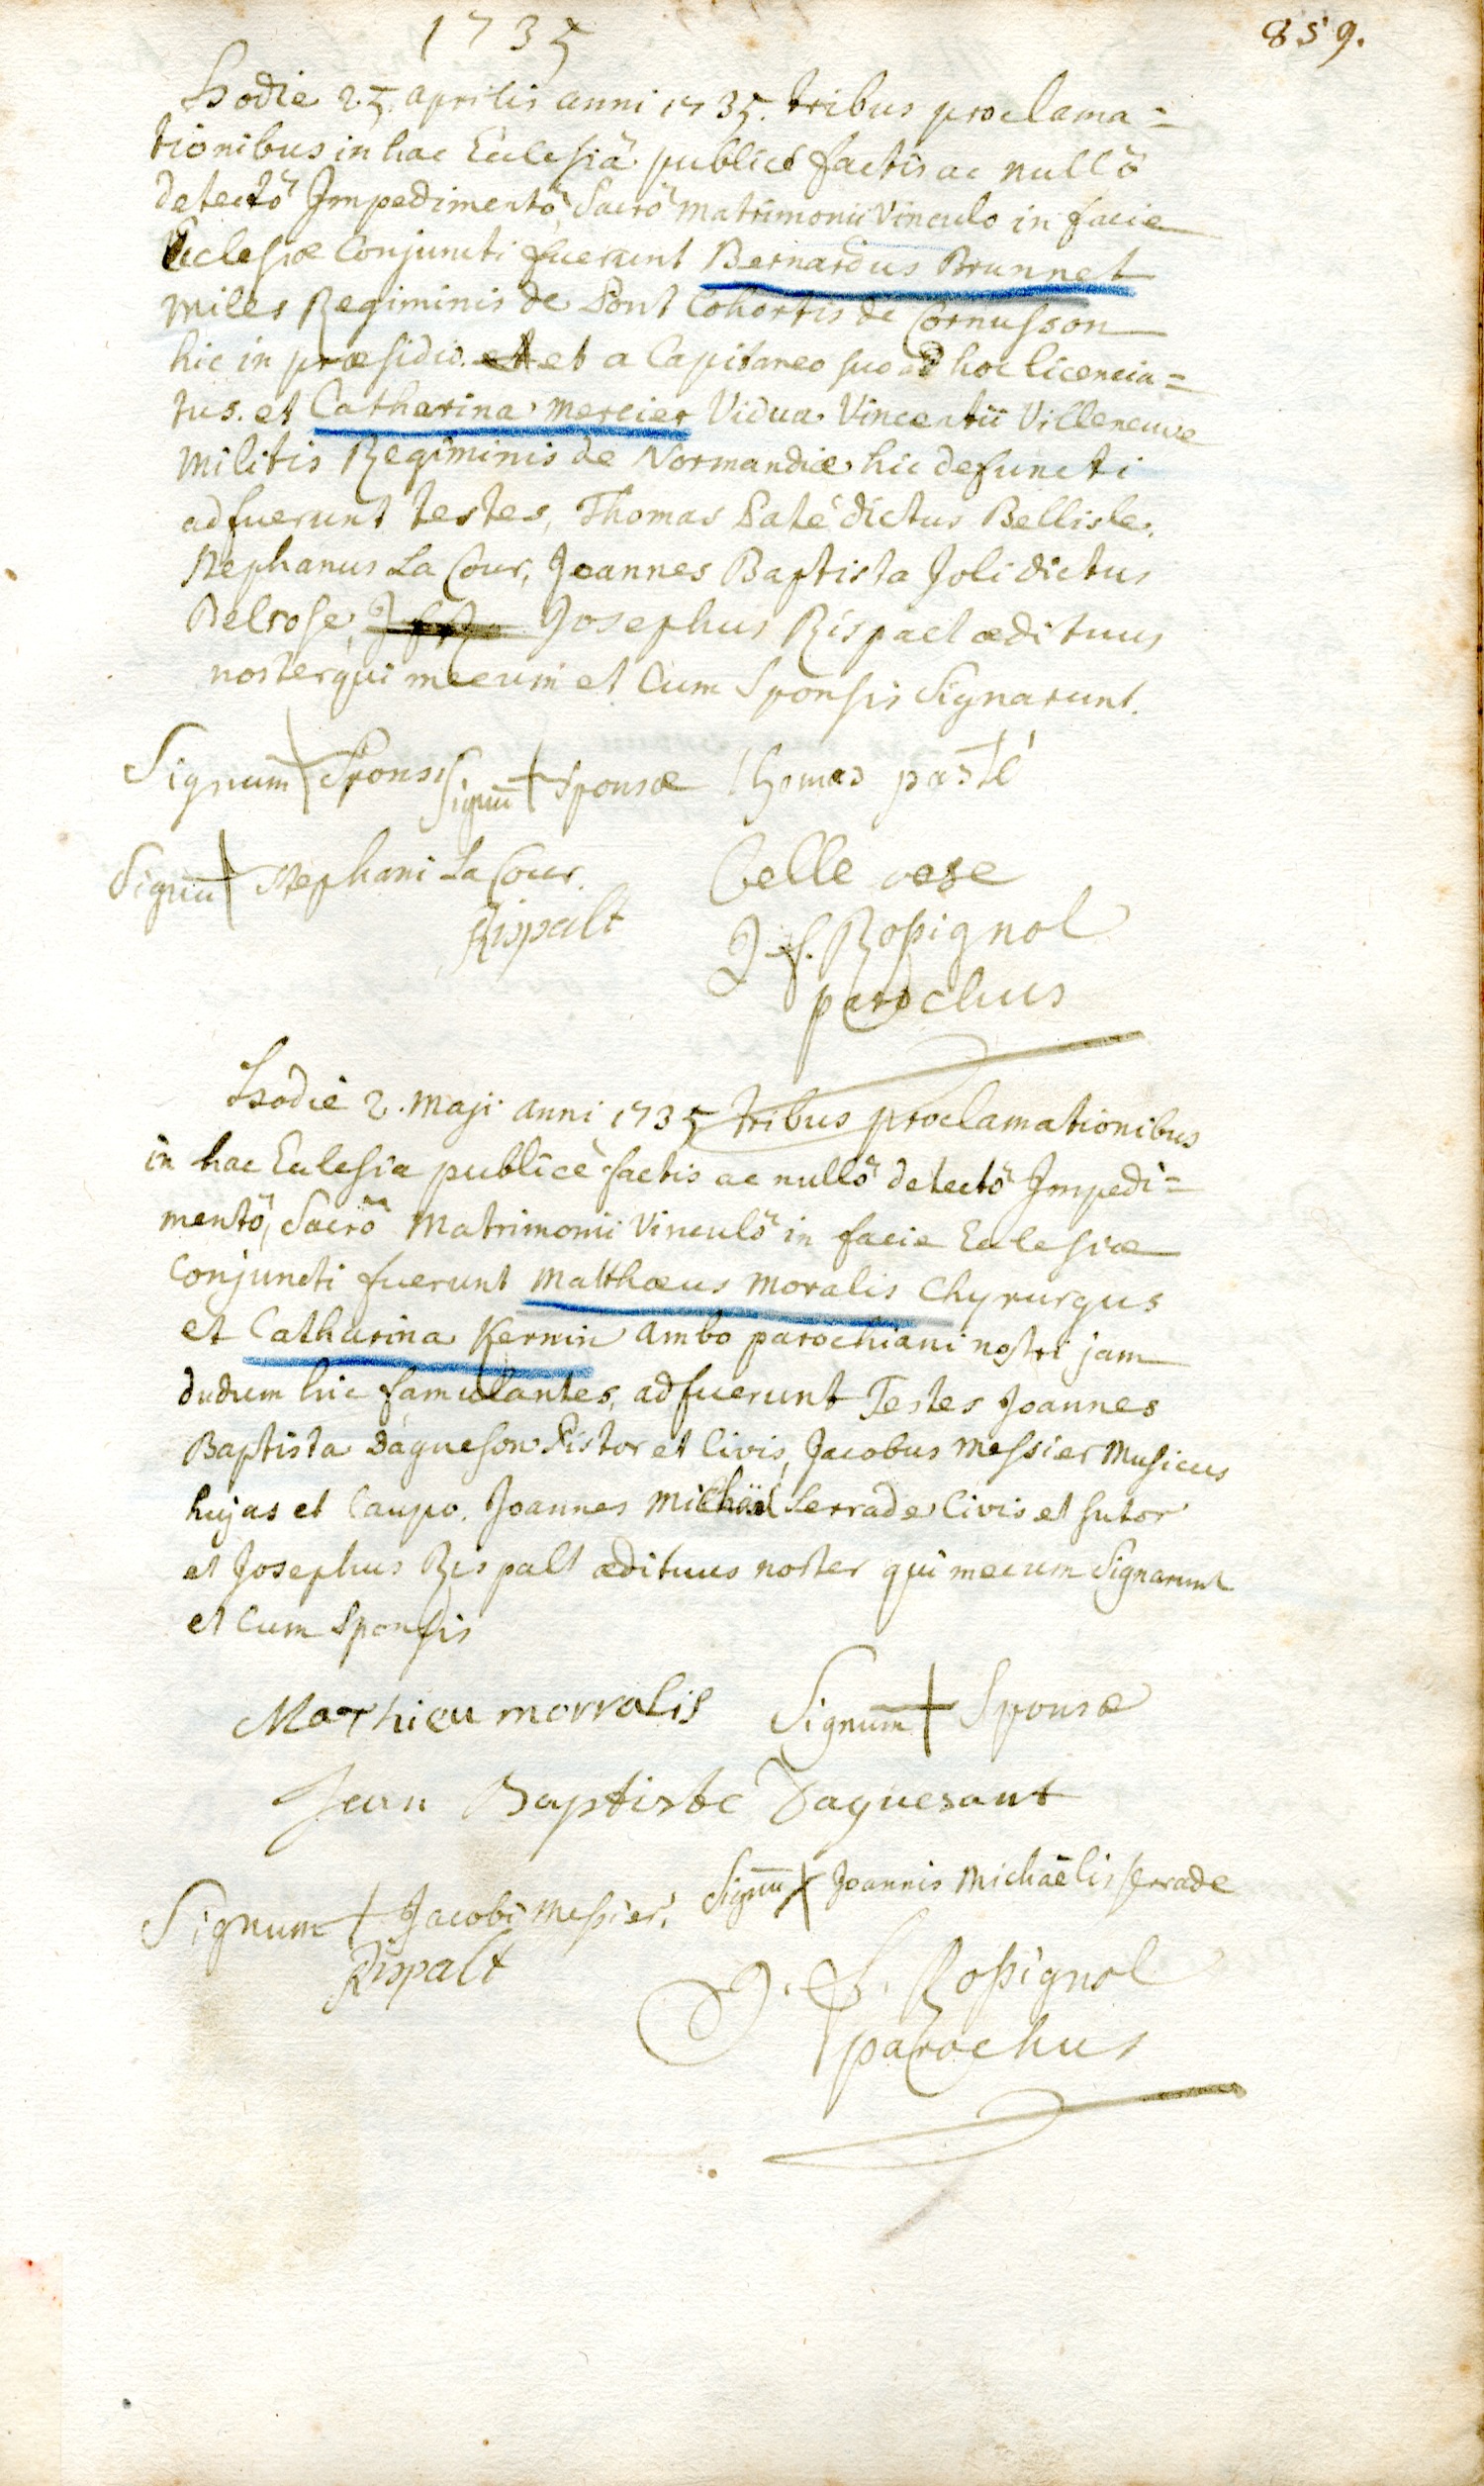 1735
859.
Hodie 25. aprilis anni 1735. tribus proclama=
tionibus in hac Ecclesiâ publicè factis ac nullô
detectô Impedimentô, Sacrô Matrimonii Vinculo in facie
Ecclesiæ Conjuncti fuerunt Bernardus Brunnet
miles Regiminis de Pont Cohortis de Cornusson
hic in præsidio. et et a Capitaneo suo ad hoc licencia=
tus. et Catharina Mercier Vidua Vincentii Villeneuve
Militis Regiminis de Normandiæ hic defuncti
adfuerunt testes, Thomas Paté dictus Bellisle.
Stephanus La Cour, Joannes Baptista Joli dictus
Belrose, Josephus Rispalt ædituus
noster qui mecum et Cum Sponsis Signarunt.
Signum + Sponsi Signū + Sponsæ Thomas pasté
Signū + Stephani La Cour. belle rose
Rispalt J. f. Rosignol
parochus
Hodie 2. Maji anni 1735 tribus proclamationibus
in hac Eclesia publicè factis ac nullô detectô Impedi=
mentô, Sacrô Matrimonii Vinculô in facie Eclesiæ
Conjuncti fuerunt Matthæus Moralis Chyrurgus
et Catharina Kernin ambo parochiani nostri jam
dudum hic famulantes, adfuerunt Testes Joannes
Baptista Dagueson Pistor et Civis, Jacobus Messier Musicus
hujas et Caupo. Joannes Michäel Serrade Civis et sutor
et Josephus Rispalt ædituus noster qui mecum Signarunt
et Cum Sponsis
Mathieu morralis Signum + Sponsæ
Jean Baptiste Daguesant
Signum + Jacobi Messier. Signū + Joannis Michaëlis Serrade
Rispalt J. f. Rosignol
parochus